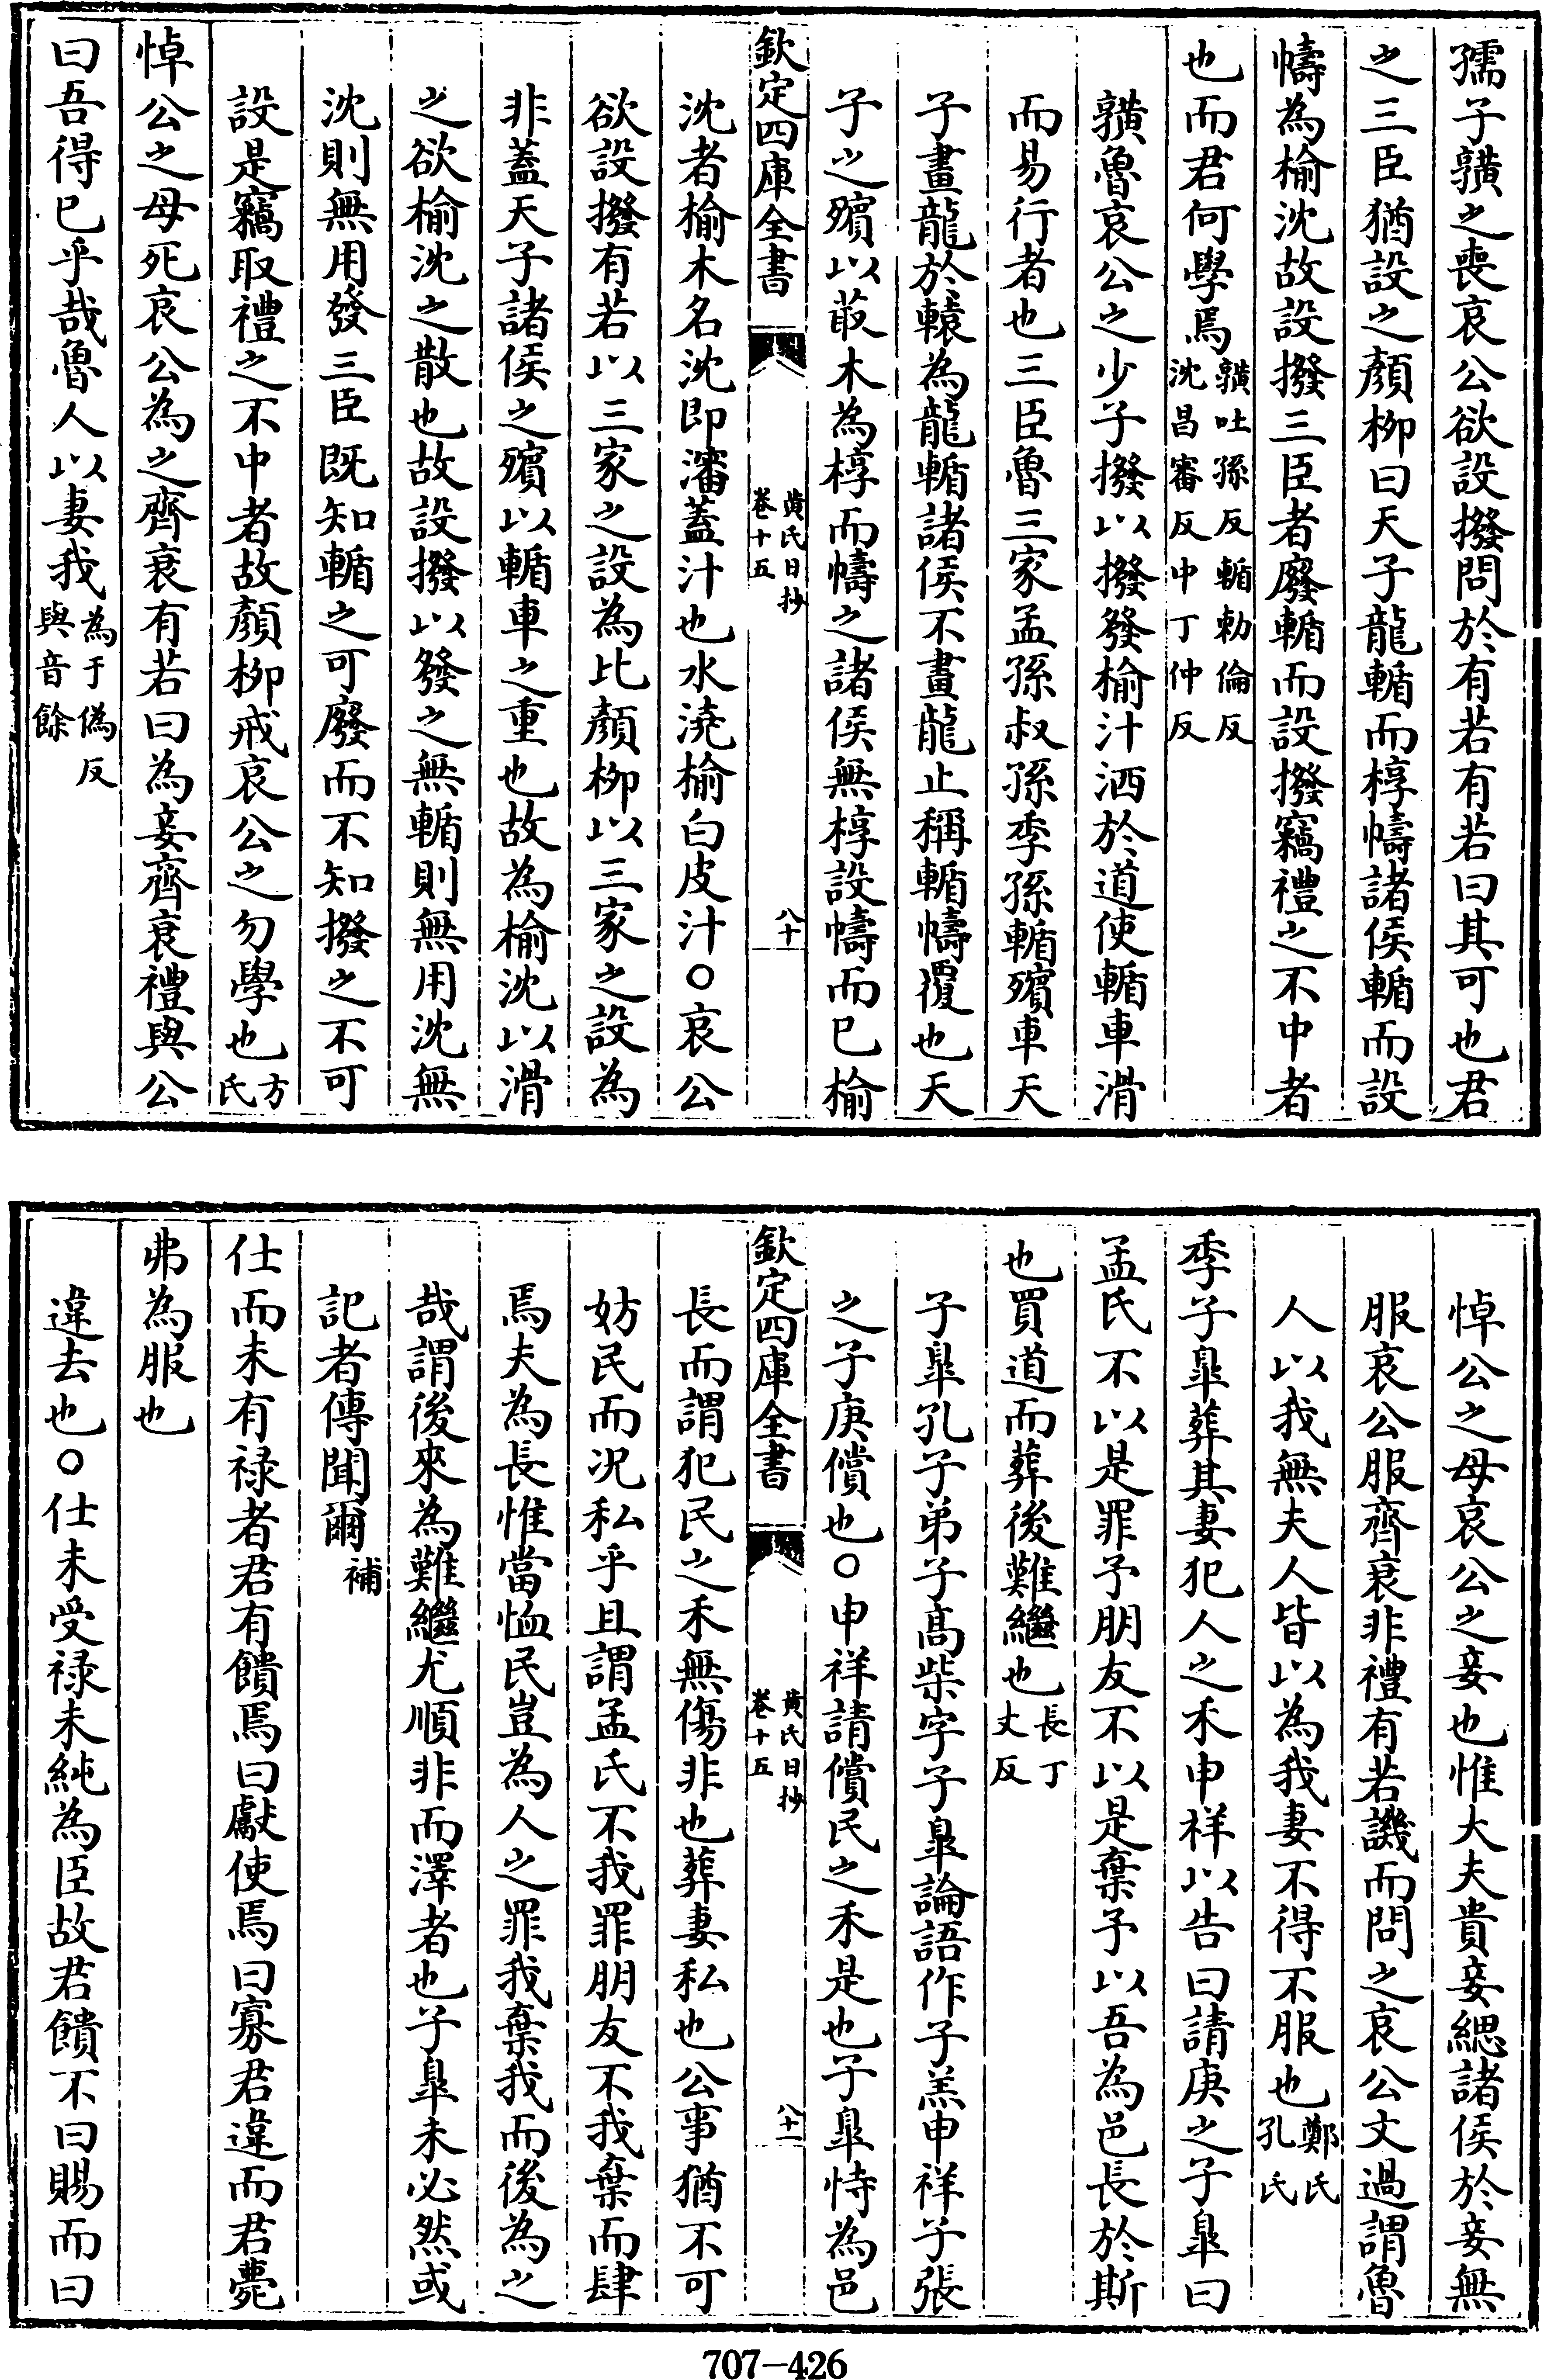 孺子𪏆之喪哀公欲設撥問於有若有若曰其可也君
之三臣猶設之顏柳曰天子龍輴而椁幬諸侯輴而設
幬為榆沈故設撥三臣者廢輴而設撥竊禮之不中者
也而君何學焉𪏆吐孫反輴勑倫反沈昌審反中丁仲反
𪏆魯哀公之少子撥以撥發榆汁洒於道使輴車滑
而易行者也三臣魯三家孟孫叔孫季孫輴殯車天
子畫龍於轅為龍輴諸侯不畫龍止稱輴幬覆也天
子之殯以菆木為椁而幬之諸侯無椁設幬而已榆
欽定四庫全書
黃氏日抄
卷十五
八十
沈者榆木名沈即瀋蓋汁也水澆榆白皮汁○哀公
欲設撥有若以三家之設為比顏柳以三家之設為
非蓋天子諸侯之殯以輴車之重也故為榆沈以滑
之欲榆沈之散也故設撥以發之無輴則無用沈無
沈則無用發三臣既知輴之可廢而不知撥之不可
設是竊取禮之不中者故顏柳戒哀公之勿學也方氏
悼公之母死哀公為之齊衰有若曰為妾齊衰禮與公
曰吾得已乎哉魯人以妻我為于偽反與音餘
悼公之母哀公之妾也惟大夫貴妾緦諸侯於妾無
服哀公服齊衰非禮有若譏而問之哀公文過謂魯
人以我無夫人皆以為我妻不得不服也鄭氏孔氏
季子臯葬其妻犯人之禾申祥以告曰請庚之子臯曰
孟氏不以是罪予朋友不以是棄予以吾為邑長於斯
也買道而葬後難繼也長丁丈反
子臯孔子弟子高柴字子臯論語作子羔申祥子張
之子庚償也○申祥請償民之禾是也子臯恃為邑
欽定四庫全書
黃氏日抄
卷十五
八十一
長而謂犯民之禾無傷非也葬妻私也公事猶不可
妨民而況私乎且謂孟氏不我罪朋友不我棄而肆
焉夫為長惟當恤民豈為人之罪我棄我而後為之
哉謂後來為難繼尤順非而澤者也子臯未必然或
記者傳聞爾補
仕而未有祿者君有饋焉曰獻使焉曰寡君違而君薨
弗為服也
違去也○仕未受祿未純為臣故君饋不曰賜而曰
707—426